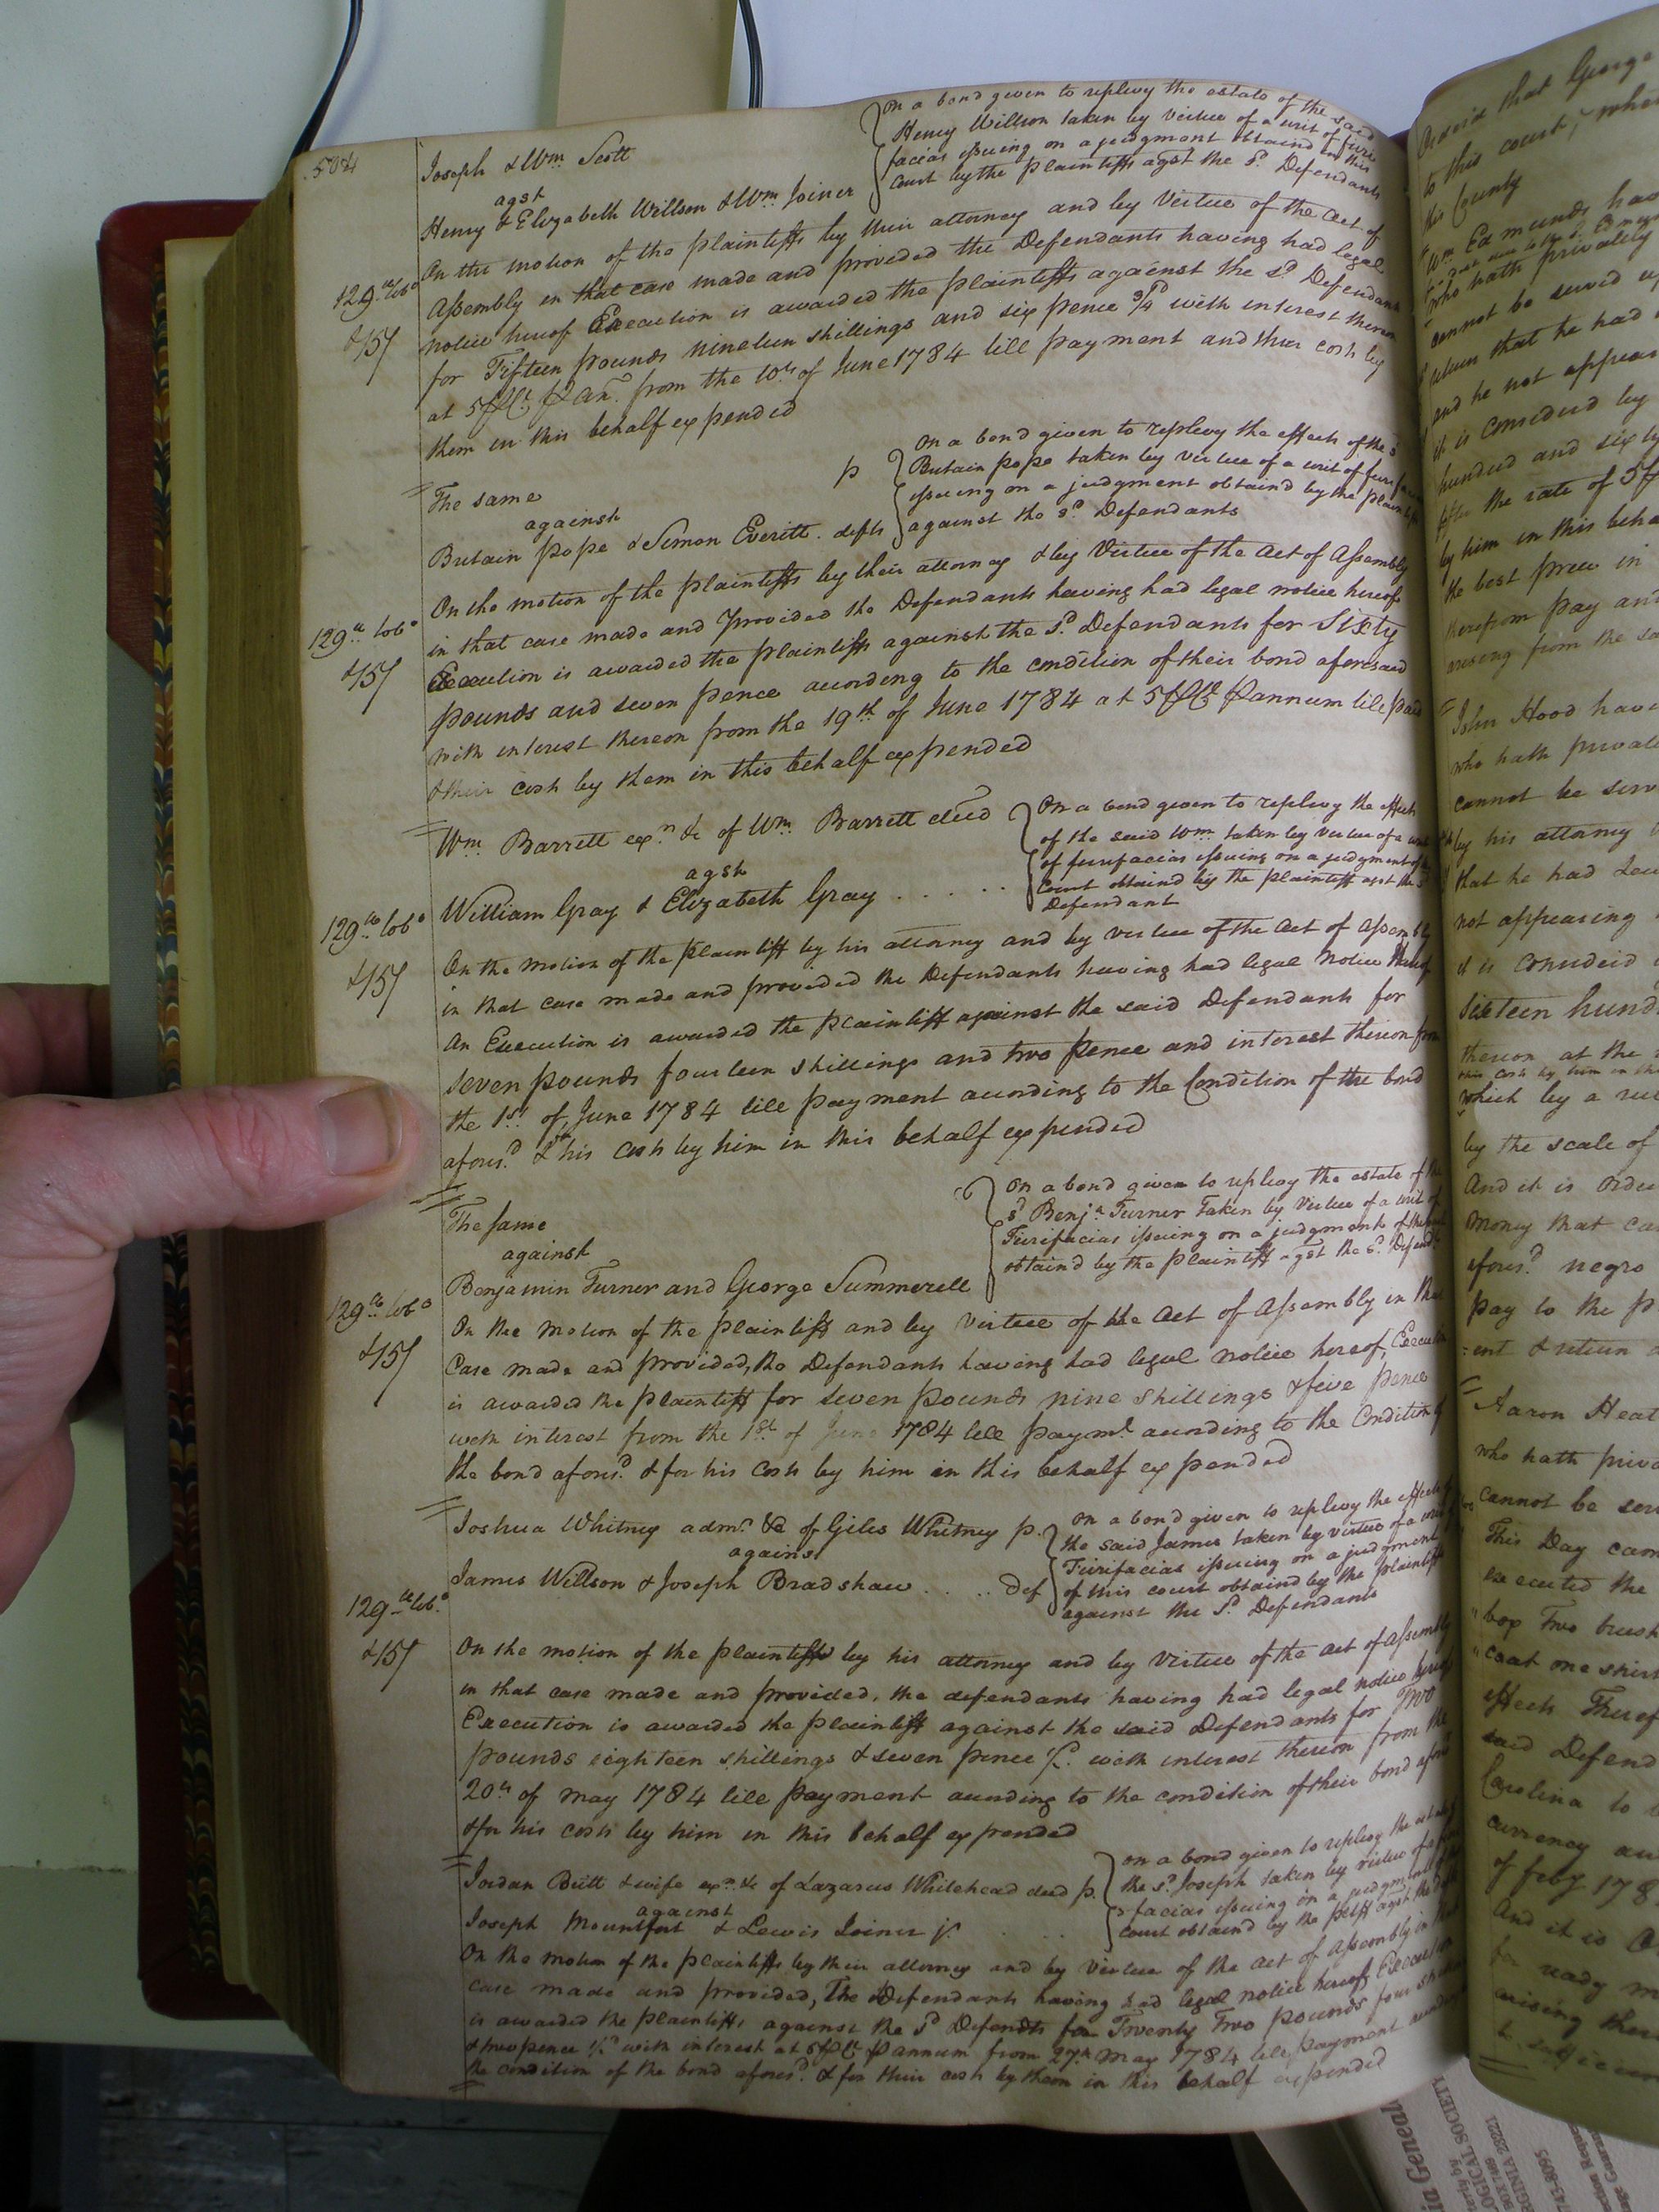 504
Joseph & Wm. Scott
agst
Henry & Elizabeth Willson & Wm. Joiner
On a bond given to replevy the estate of the said
Henry Willson taken by Virtue of a writ of furi
facias issuing on a judgment obtaind in this
Court by the plaintiffs agst the sd. Defendants
On the motion of the plaintiffs by their attorney and by Virtue of the act of
Assembly in that case made and provided the Defendants having had legal
notice hereof Execution is awarded the plaintiffs against the sd. Defendants
for Fifteen pounds nineteen shillings and six pence 3/4 with interest thereon
at 5 Ct. an. from the 10th of June 1784 till payment and their costs by
them in this behalf expended
129 tobo
&15/
The same p
against
Britain pope & Simon Everitt. defts
On a bond given to replevy the effects of the sd
Britain pope taken by virtue of a writ of furi facias
issuing on a judgment obtaind by the plaintiffs
against the sd. Defendants
On the motion of the plaintiffs by their attorney & by Virtue of the act of Assembly
in that case made and provided the Defendants having had legal notice hereof
Execution is awarded the plaintiffs against the sd. Defendants for Sixty
pounds and seven pence according to the condition of their bond aforesaid
with interest thereon from the 19th of June 1784 at 5 Ct annum till paid
& their costs by them in this behalf expended
129 tobo
&15/
Wm. Barrett exr. &c of Wm. Barrett decd
agst
William Gray & Elizabeth Gray . . . . . .
On a bond given to replevy the effects
of the said Wm. taken by Virtue of a writ
of furifacias issuing on a judgment of
Court obtaind by the plaintiff agst the sd
Defendant
129 tobo
&15/
On the motion of the plaintiff by his attorney and by Vertue of the act of Assembly
in that case made and provided the Defendants having had legal notice thereof
An Execution is awarded the plaintiff against the said Defendants for
seven pounds fourteen shillings and two pence and interest thereon from
the 1st. of June 1784 till payment according to the Condition of the bond
afores.d & his costs by him in this behalf expended
The same
against
Benjamin Turner and George Summerell
On a bond given to replevy the estate of the
sd Benja. Turner taken by Virtue of a writ of
Furifacias issuing on a judgment of
obtaind by the plaintiff agst the sd. Defend
129 tobo
&15/
On the motion of the plaintiff and by Virtue of the act of Assembly in that
case made and provided, the Defendants having had legal notice hereof, Execution
is awarded the plaintiff for seven pounds nine shillings & five pence
with interest from the 1st. of June 1784 till paymt. according to the Condition of
the bond afores.d & for his costs by him in this behalf expended
Joshua Whitney admr. &c of Giles Whitney p.
against
James Willson & Joseph Bradshaw . . . . Def
On a bond given to replevy the effects of
the said James taken by Virtue of a writ
Furifacias issuing on a judgment
of this court obtaind by the plaintiffs
against the sd. Defendants
129 tob.
&15/
On the motion of the plaintiffs by his attorney and by Virtue of the act of Assembly
in that case made and provided. the defendants having had legal notice hereof
Execution is awarded the plaintiff against the said Defendants for Two
pounds eighteen shillings & seven pence with interest thereon from the
20th of may 1784 till payment according to the condition of their bond afores
& for his costs by him in this behalf expended
Jordan Britt & wife exrs. &c of Lazarus Whitehead decd p.
against
Joseph Mountfort & Lewis Joiner jr.
On a bond given to replevy the estate
the sd. Joseph taken by virtue of a
facias issuing on a judgment
court obtaind by the pltff agst the
On the motion of the plaintiffs by their attorney and by Virtue of the act of Assembly in that
case made and provided, The Defendants having had legal notice hereof Execution
is awarded the plaintiffs against the sd Defendts for Twenty Two pounds four
& two pence with interest at 5 Ct annum from 27th May 1784 till payment
the condition of the bond afores.d & for their costs by them in this behalf expended
that George
to this court,
this County
Wm. Edmunds
who hath privately
cannot be served
when that he had
and he not appear
it is considered by
hundred and sixty
the rate of 5
by him in this beha
the best price in
therefrom pay and
arising from the
John Hood have
who hath privat
cannot be serv
by his attorney
that he had
not appearing
it is considerd
sixteen hund
thereon at the
which by a
by the scale of
And it is orde
money that
afores.d negro
pay to the p
ent & return
Aaron Heat
who hath priva
cannot be serv
This Day cam
executed the
box Two brush
coat one shirt
effects Theref
said Defend
Carolina to
currency an
of feby 178
And it is
for ready m
arising
LOGICAL SOCIETY
743-8095